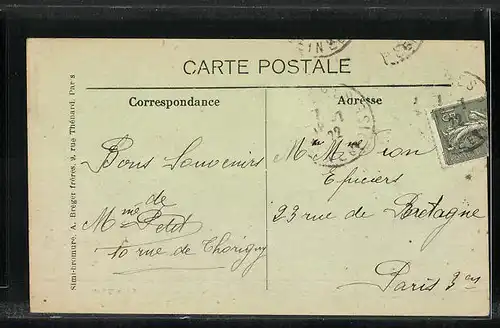 CARTE POSTALE
Correspondance
Adresse
Bons Souvenirs
de
Mme Petit
10 rue de Thorigny
Mr Mme
Epiciers
23 rue de Bretagne
Paris 3e
Simi-bromure. A. Breger frères, 9, rue Thénard, Paris